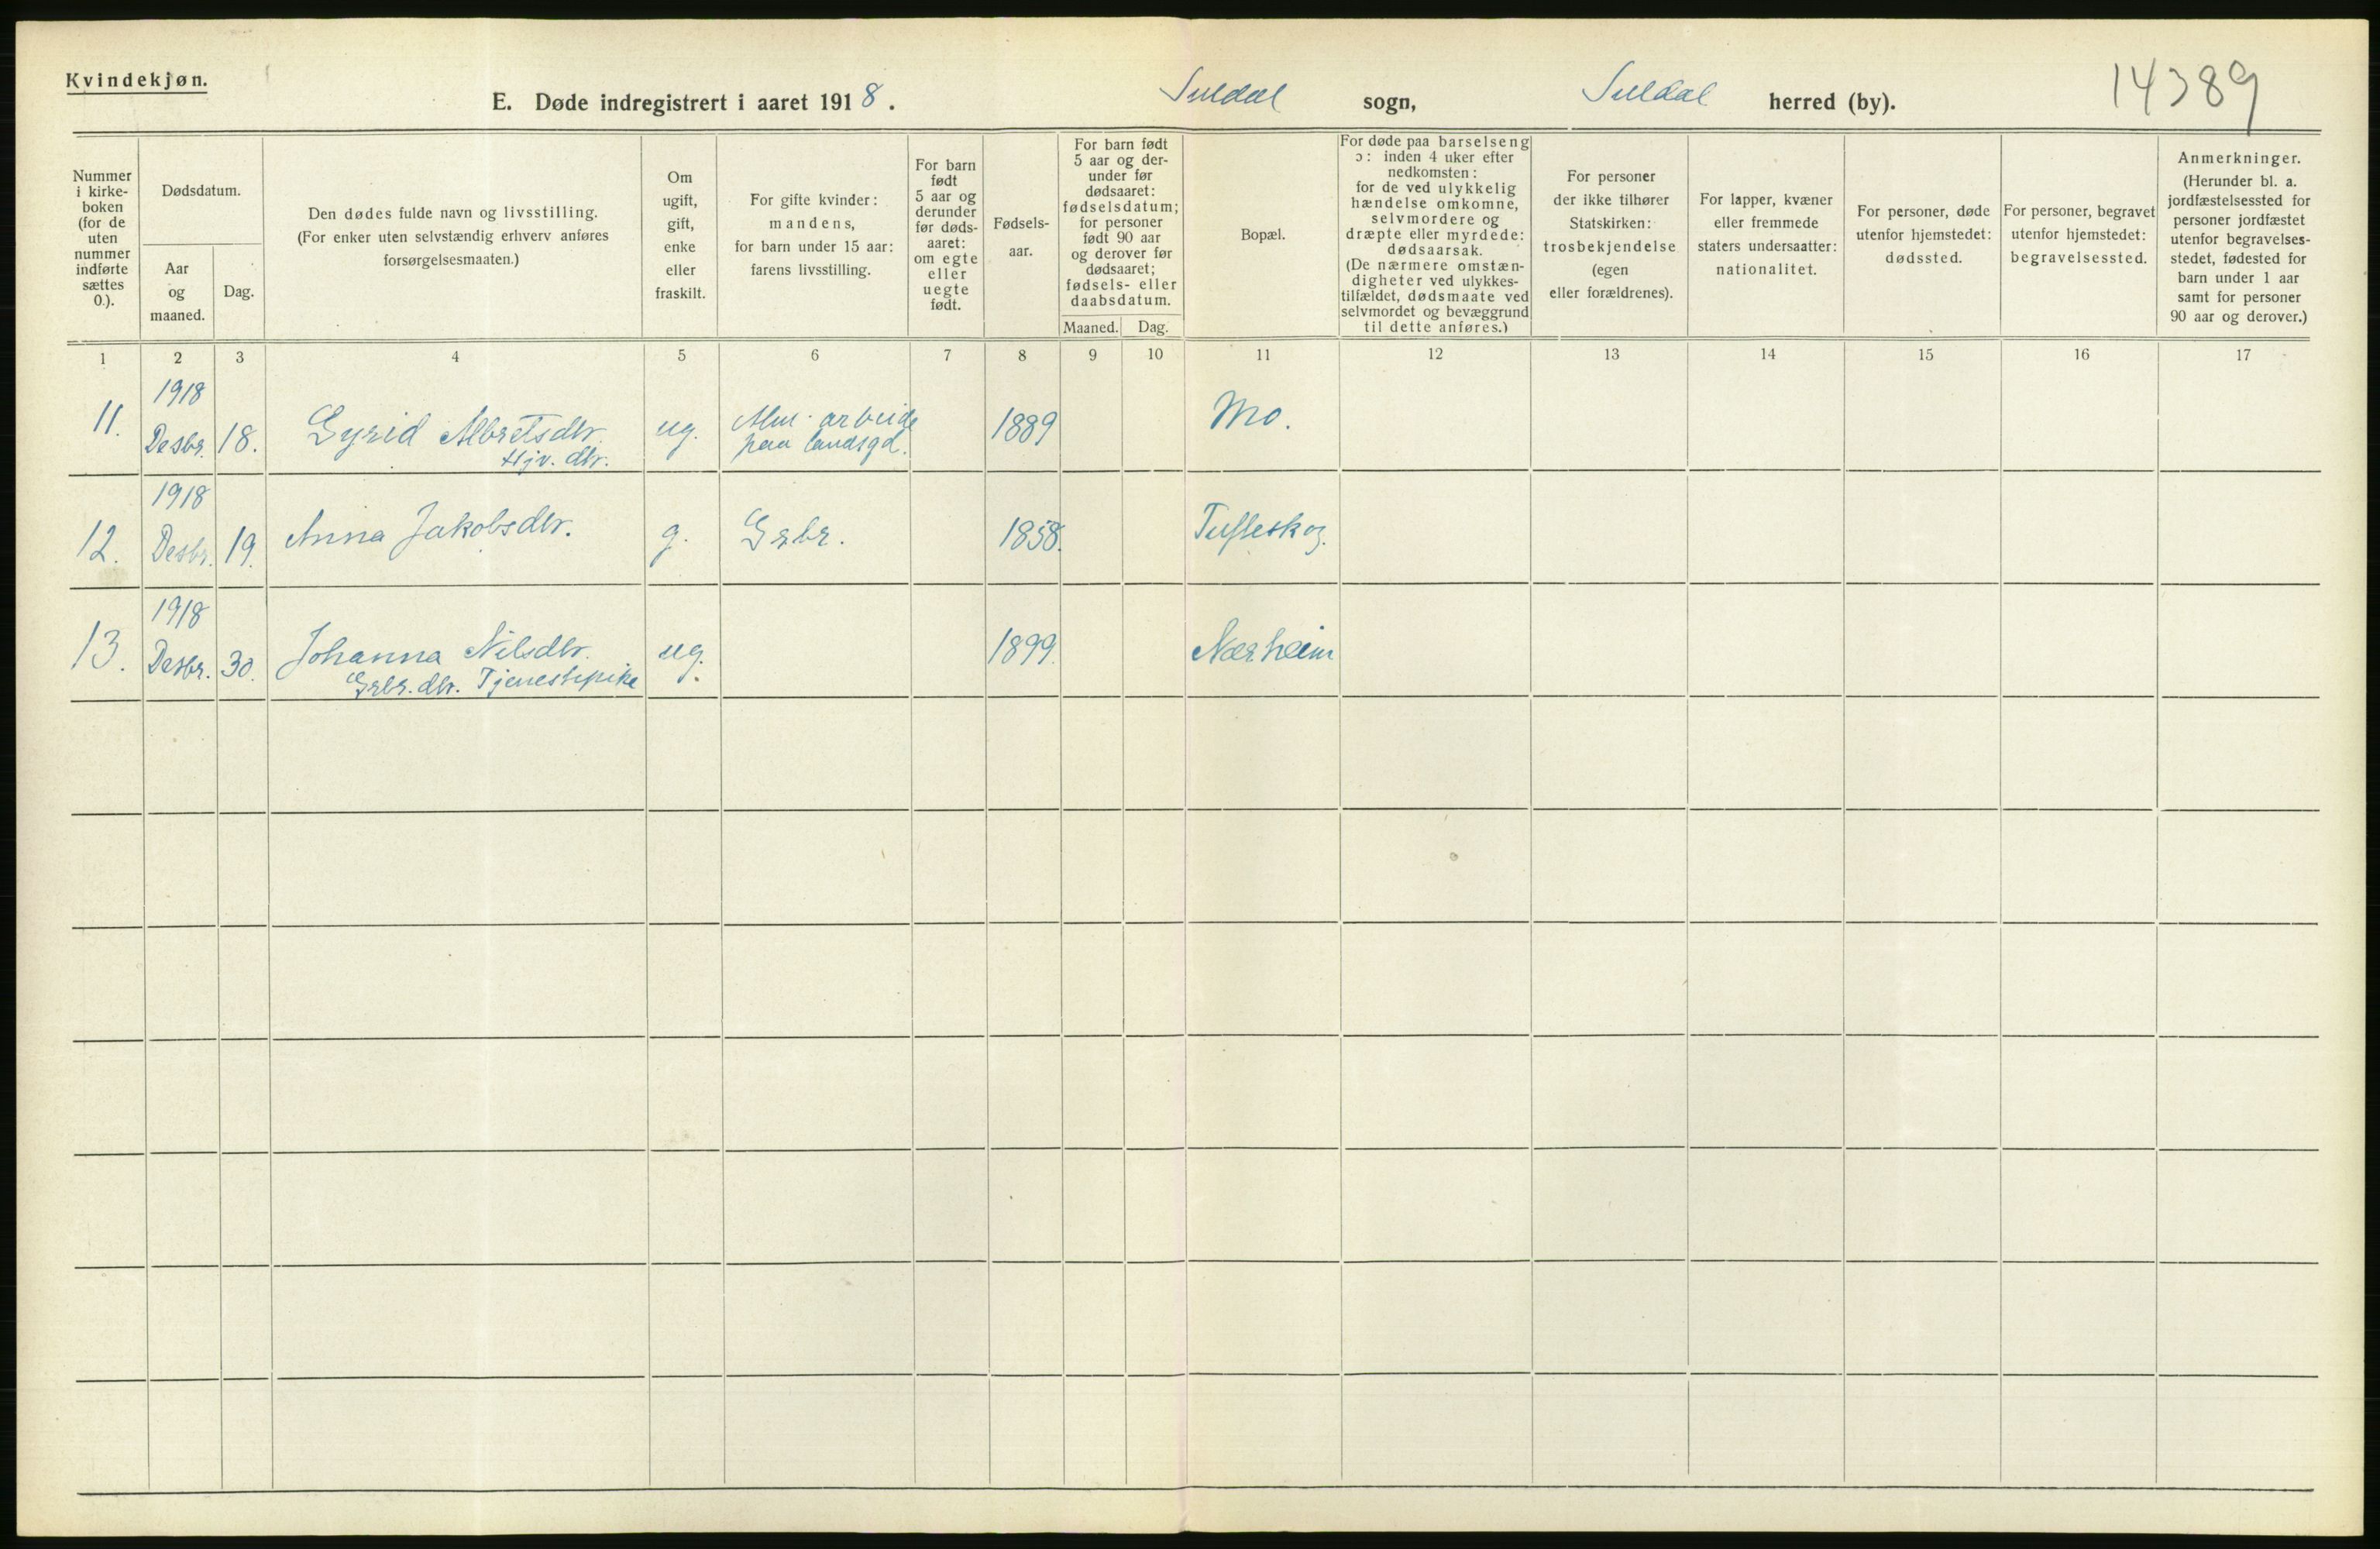 Kvindekjøn.
E. Døde indregistrert i aaret 1918.
Suldal sogn,
Suldal herred (by).
14389
Nummer
i kirke-
boken
(for de
uten
nummer
indførte
sættes
0.).
Dødsdatum.
Aar
og
maaned.
Dag.
Den dødes fulde navn og livsstilling.
(For enker uten selvstændig erhverv anføres
forsørgelsesmaaten.)
Om
ugift,
gift,
enke
eller
fraskilt.
For gifte kvinder:
mandens,
for barn under 15 aar:
farens livsstilling.
For barn
født
5 aar og
derunder
før døds-
aaret:
om egte
eller
uegte
født.
Fødsels-
aar.
For barn født
5 aar og der-
under før
dødsaaret:
fødselsdatum;
for personer
født 90 aar
og derover før
dødsaaret;
fødsels- eller
daabsdatum.
Maaned.
Dag.
Bopæl.
For døde paa barselseng
ɔ: inden 4 uker efter
nedkomsten:
for de ved ulykkelig
hændelse omkomne,
selvmordere og
dræpte eller myrdede:
dødsaarsak.
(De nærmere omstæn-
digheter ved ulykkes-
tilfældet, dødsmaate ved
selvmordet og bevæggrund
til dette anføres.)
For personer
der ikke tilhører
Statskirken:
trosbekjendelse
(egen
eller forældrenes).
For lapper, kvæner
eller fremmede
staters undersaatter:
nationalitet.
For personer, døde
utenfor hjemstedet:
dødssted.
For personer, begravet
utenfor hjemstedet:
begravelsessted.
Anmerkninger.
(Herunder bl. a.
jordfæstelsessted for
personer jordfæstet
utenfor begravelses-
stedet, fødested for
barn under 1 aar
samt for personer
90 aar og derover.)
1 2 3 4 5 6 7 8 9 10 11 12 13 14 15 16 17
11. 1918 Desbr. 18. Gyrid Albretsdtr. ug. Alm. arbeide 1889 Mo.
Hjv. dtr. paa landsgd.
12. 1918 Desbr. 19. Anna Jakobsdtr. g. Grbr. 1858.
13. 1918 Desbr. 30. Johanna Nilsdtr. ug. 1899. Nærheim
Grbr. dtr. Tjenestepike